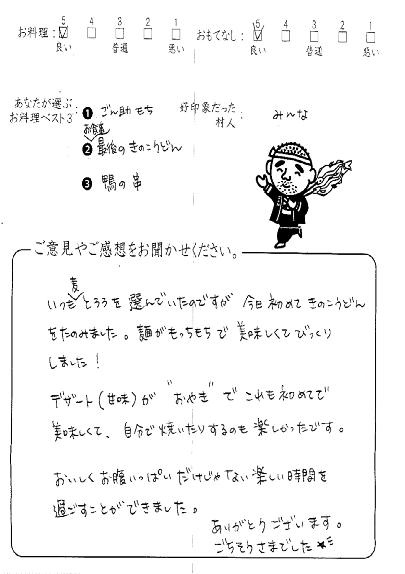 お料理: 5 4 3 2 1 おもてなし: 5 4 3 2 1
良い 普通 悪い 良い 普通 悪い
あなたが選ぶ
お料理ベスト3:
❶ ごん助もち
お食事
❷ 最後のきのこうどん
❸ 鴨の串
好印象だった
村人:
みんな
ご意見やご感想をお聞かせください。
麦
いつもとろろを選んでいたのですが 今日初めてきのこうどん
をたのみました。麺がもっちもちで美味しくてびっくり
しました!
デザート(甘味)が "おやき"でこれも初めてで
美味しくて、自分で焼いたりするのも楽しかったです。
おいしくお腹いっぱいだけじゃない楽しい時間を
過ごすことができました。
ありがとうございます。
ごちそうさまでした